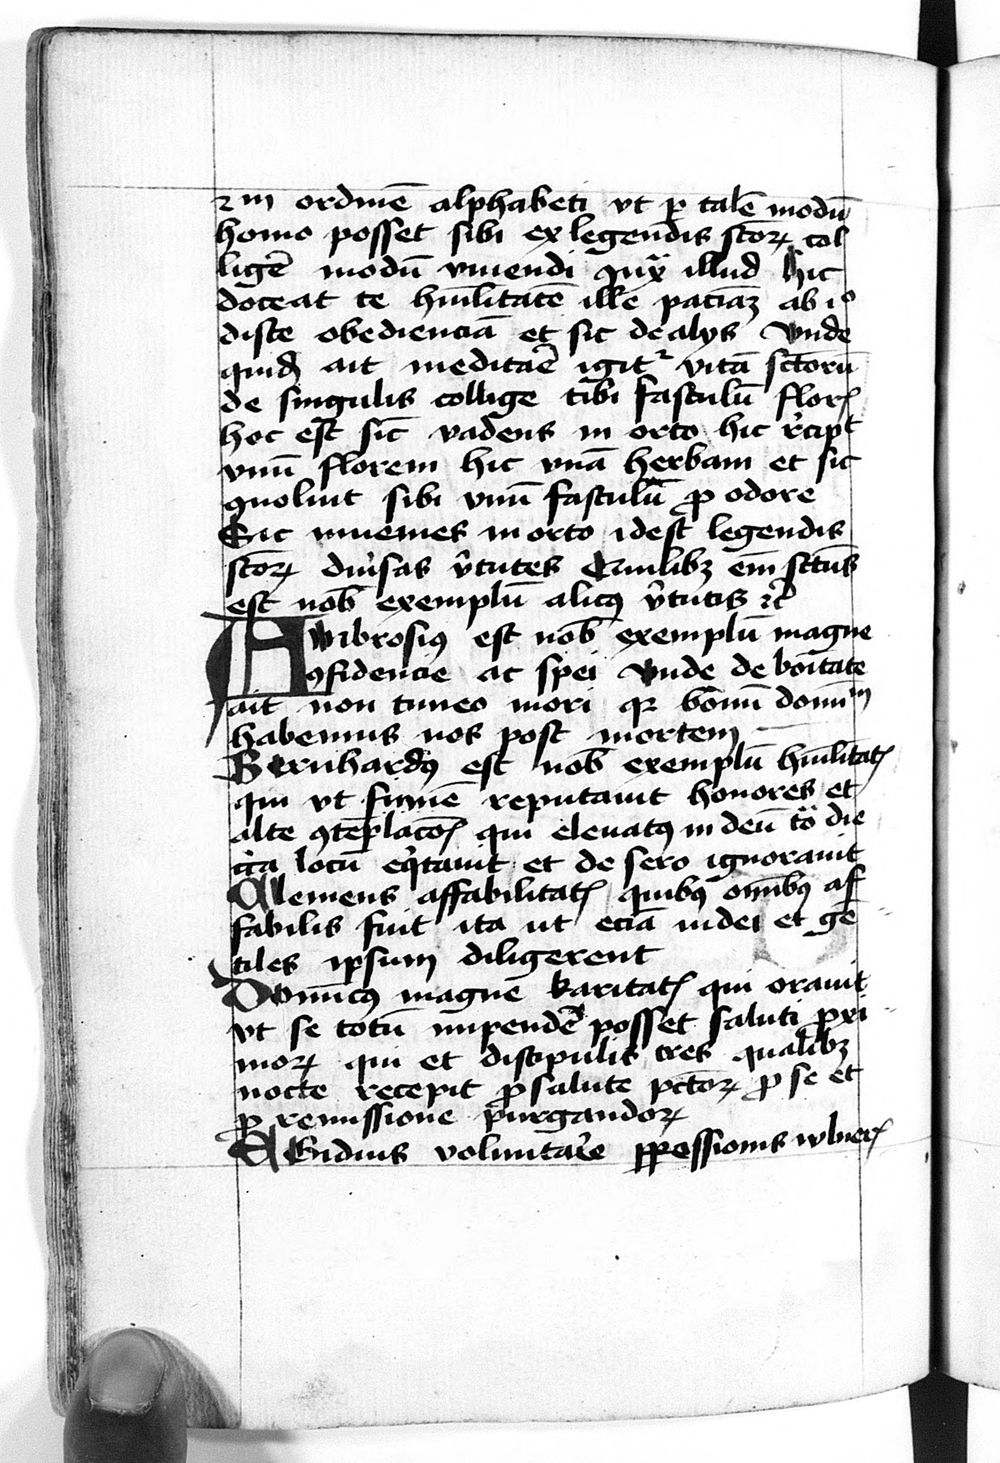 ꝛm ordinē alphabeti vt ꝑ talē modū
homo posset sibi ex legendis sctoꝝ col
ligē modū viuendi iuxͣ illud hic
doceat te hūilitatē ille paciaꝫ ab iº
disce obedienciā et sic de alys Vnde
quidā ait meditaē igitᷣ vitā sctorū
de singulis collige tibi fasculū floꝝ
hoc est sic̄ vadens in orto hic r̄cipᵗ
vnū florem hic vnā herbam et sic
quoluit sibi vnū fasculū ꝓ odore
Sic inuenies in orto idest legendis
sctoꝝ diūsas v̄tutes Cuilibꝫ em̄ sctūs
est nob̄ exemplū alicꝰ v̄tutis ⁊c̄
Ambrosiꝰ est nob̄ exemplū magne
ꝯfidencie ac spei Vnde de bōitate
ait non timeo mori qꝛ bonū domīᵐ
habemus nos post mortem
Bernhardꝰ est nob̄ exemplū hūilitatꝭ
qui vt fumē reputauit honores et
alte ꝯteplacōꝭ qui eleuatꝰ in deū to die
ci̇a locū eq̇tauit et de sero ignorauit
Clemens affabilitatꝭ quibꝰ om̄ibꝰ af
fabilis fuit ita ut eciā iudei et gē
tiles ipsum diligerent
Domicꝰ magne karitatꝭ qui orauit
vt se totū impendē posset saluti ꝓxi
moꝝ qui et discipulis tres qualibꝫ
nocte recepit ꝓ salute pctoꝝ ꝓ se et
ꝓ remissione purgandoꝝ
EGidius voluntarē ꝑpessionis wlneꝝ